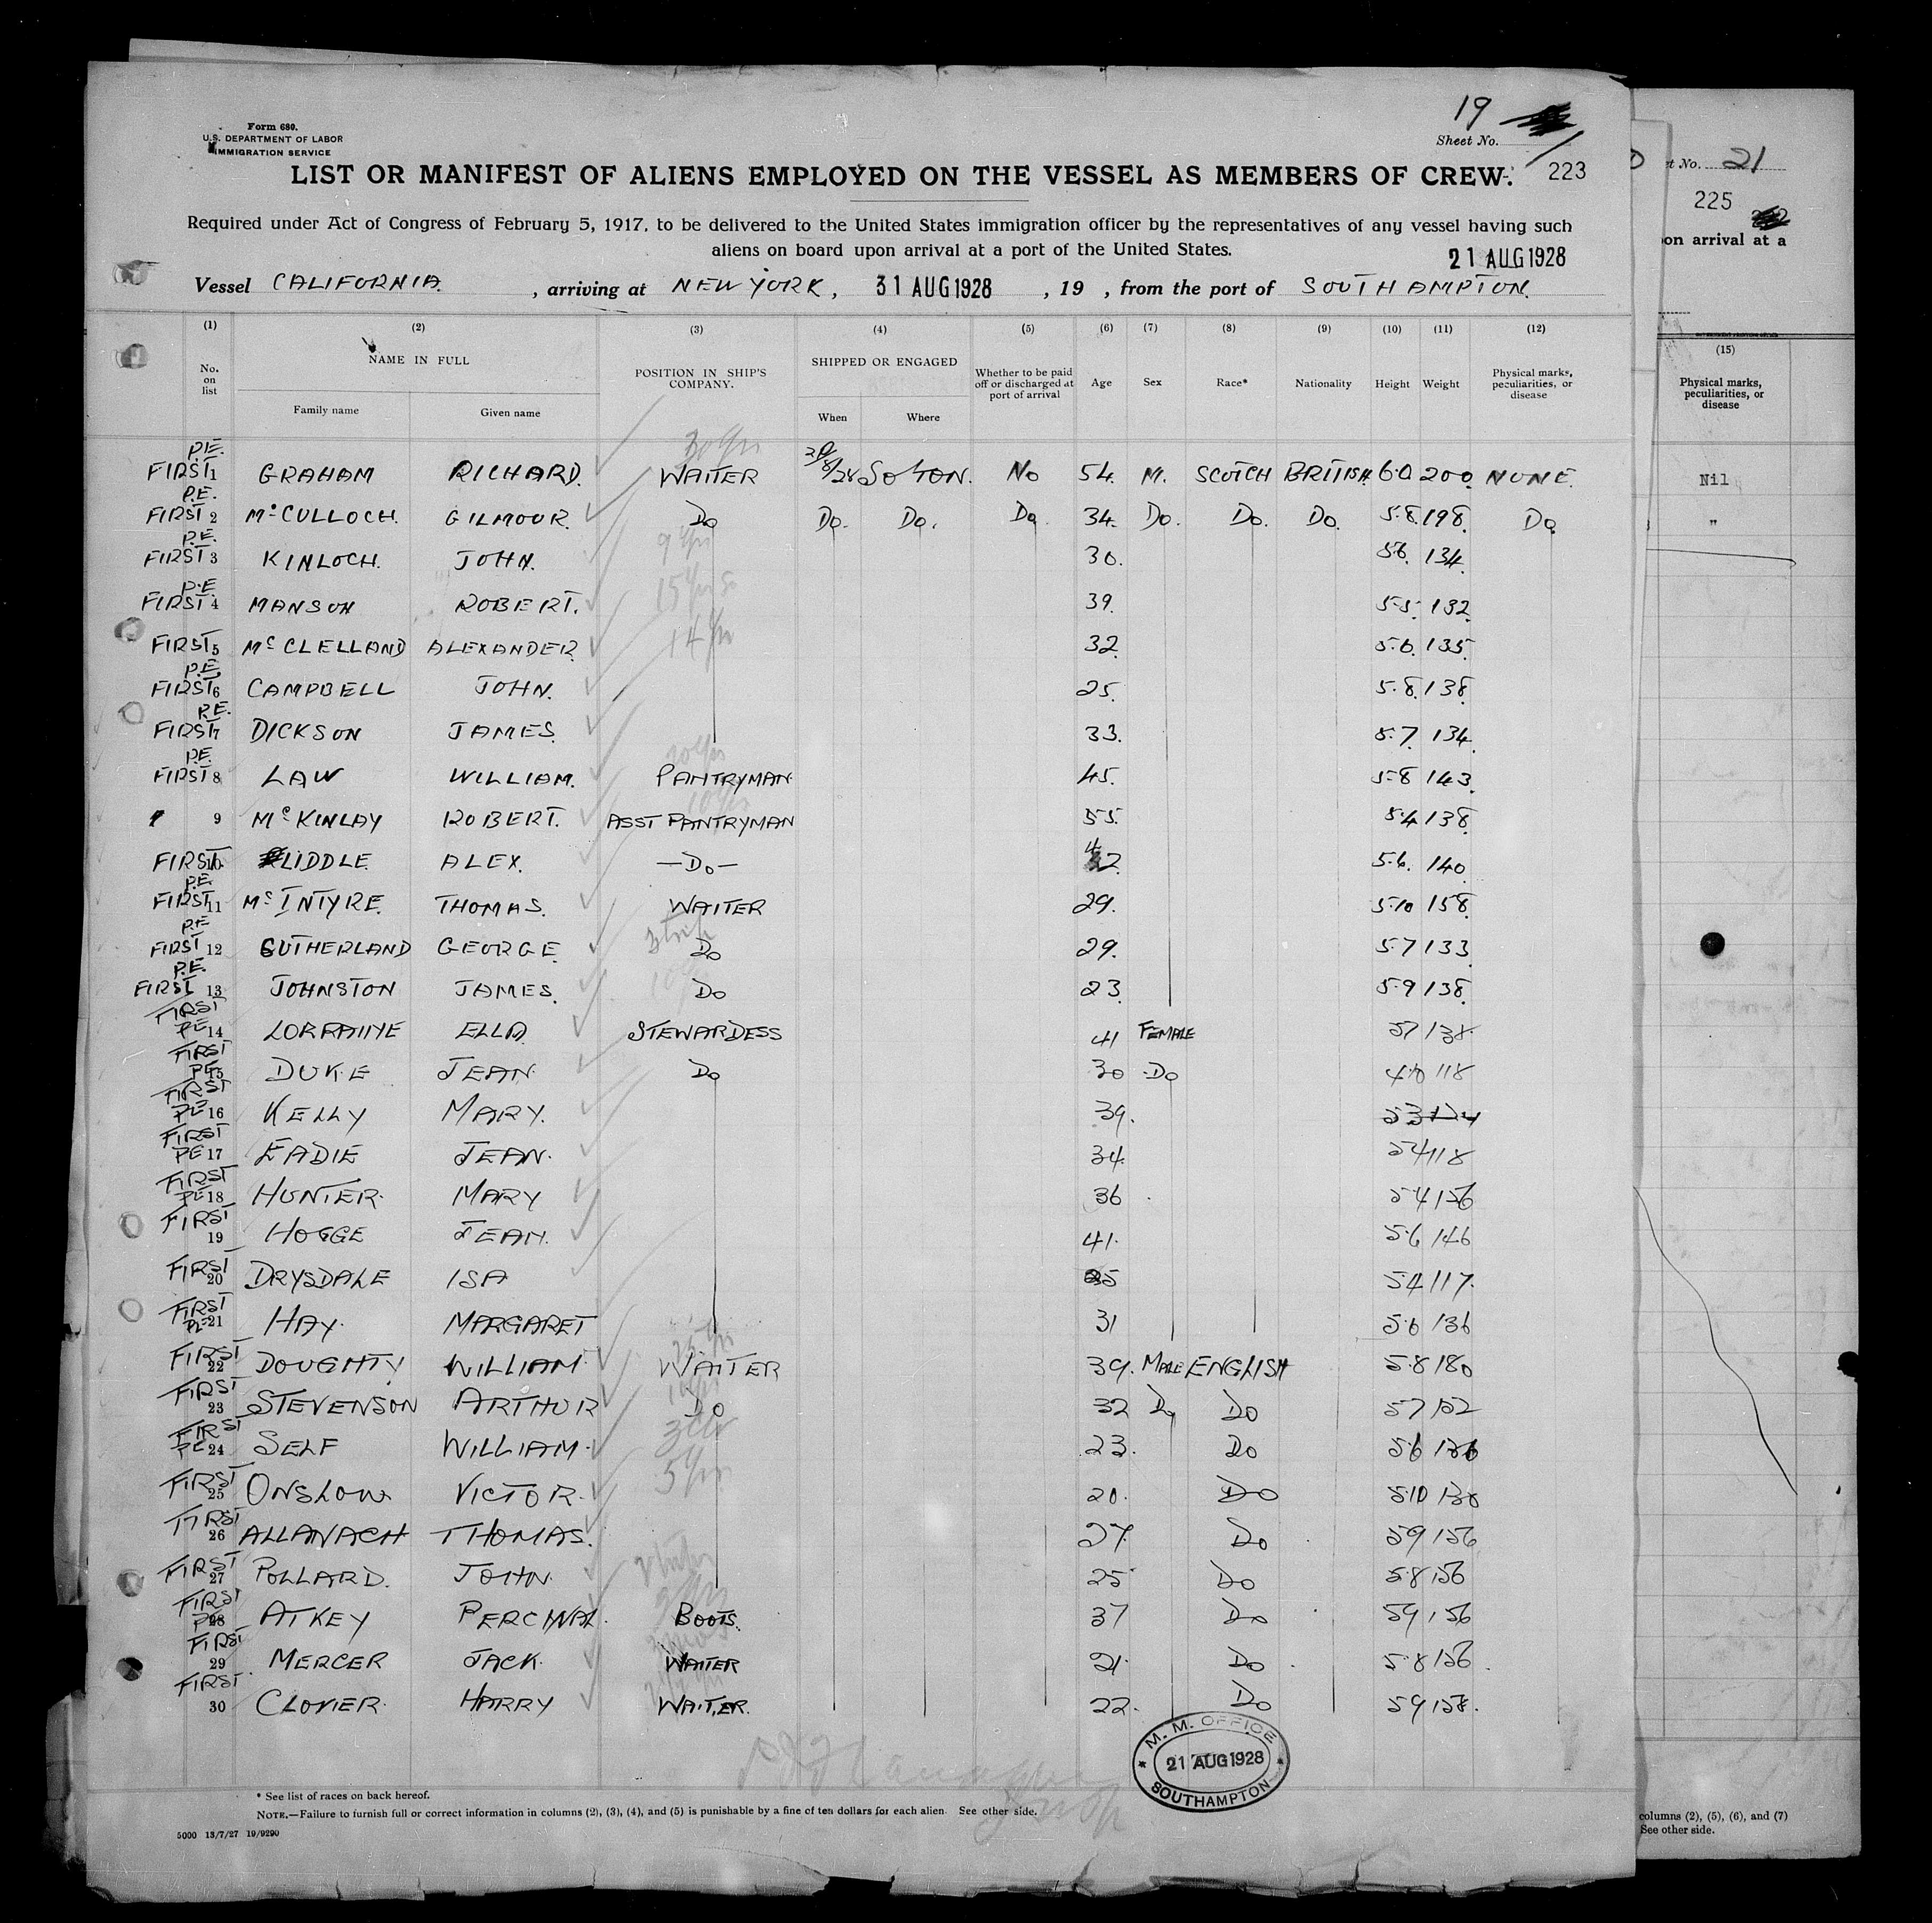 Form 680.
U.S. DEPARTMENT OF LABOR
IMMIGRATION SERVICE
19
Sheet No.
LIST OR MANIFEST OF ALIENS EMPLOYED ON THE VESSEL AS MEMBERS OF CREW. 223
Required under Act of Congress of February 5, 1917, to be delivered to the United States immigration officer by the representatives of any vessel having such
aliens on board upon arrival at a port of the United States.
21 AUG 1928
Vessel CALIFORNIA, arriving at NEW YORK, 31 AUG 1928, 19 , from the port of SOUTHAMPTON.
(1) (2) (3) (4) (5) (6) (7) (8) (9) (10) (11) (12)
No. on list NAME IN FULL POSITION IN SHIP'S COMPANY. SHIPPED OR ENGAGED Whether to be paid off or discharged at port of arrival Age Sex Race* Nationality Height Weight Physical marks, peculiarities, or disease
Family name Given name When Where
P.E. FIRST 1 GRAHAM RICHARD. WAITER SO'TON. NO 54. M. SCOTCH BRITISH 6.0 200. NONE.
P.E. FIRST 2 McCULLOCH. GILMOUR. Do Do. Do. Do 34. Do. Do. Do. 5.8. 198. Do.
P.E. FIRST 3 KINLOCH. JOHN. 9 yrs 30. 5.6. 134.
P.E. FIRST 4 MANSON ROBERT. 39. 5.5. 132.
FIRST 5 McCLELLAND ALEXANDER. 14 yrs 32. 5.6. 135.
P.E. FIRST 6 CAMPBELL JOHN. 25. 5.8. 138.
P.E. FIRST 7 DICKSON JAMES. 33. 5.7. 134.
P.E. FIRST 8 LAW WILLIAM. PANTRYMAN 45. 5.8 143.
9 McKINLAY ROBERT. ASST PANTRYMAN 55. 5.4 138.
FIRST 10 LIDDLE. ALEX. —Do— 42. 5.6. 140.
P.E. FIRST 11 McINTYRE. THOMAS. WAITER 29. 5.10 158.
P.E. FIRST 12 SUTHERLAND GEORGE. Do 29. 5.7 133.
P.E. FIRST 13 JOHNSTON JAMES. Do 23. 5.9 138.
FIRST PE 14 LORRAINE ELLA STEWARDESS 41 FEMALE 5.7 138.
FIRST PE 15 DUKE JEAN. Do 30 Do 118
FIRST PE 16 KELLY MARY. 39. 5.3
FIRST PE 17 EADIE JEAN. 34. 5.4 118
FIRST PE 18 HUNTER. MARY 36 5.4 156
FIRST 19 HOGGE JEAN. 41. 5.6 146
FIRST 20 DRYSDALE ISA 5.4 117.
FIRST PE 21 HAY. MARGARET 31 5.6 136
FIRST 22 DOUGHTY WILLIAM. WAITER 39. MALE ENGLISH 5.8 180
FIRST 23 STEVENSON ARTHUR Do 32 Do Do 5.7 152
FIRST PE 24 SELF WILLIAM. 23. Do 5.6
FIRST 25 ONSLOW VICTOR. 5 yrs 20. Do 5.10 130
FIRST 26 ALLANACH THOMAS. 27. Do 5.9 156
FIRST 27 POLLARD. JOHN. 25 Do 5.8 156
FIRST PE 28 ATKEY PERCIVAL. BOOTS. 37 Do 5.9 156
FIRST 29 MERCER JACK. WAITER 21. Do 5.8 156.
FIRST 30 CLOVIER. HARRY WAITER. 22. Do 5.9 158.
M. M. OFFICE
21 AUG 1928
SOUTHAMPTON
* See list of races on back hereof.
NOTE.—Failure to furnish full or correct information in columns (2), (3), (4), and (5) is punishable by a fine of ten dollars for each alien. See other side.
5000 13/7/27 19/9290
et No. 21
225
on arrival at a
(15)
Physical marks, peculiarities, or disease
Nil
"
columns (2), (5), (6), and (7)
See other side.